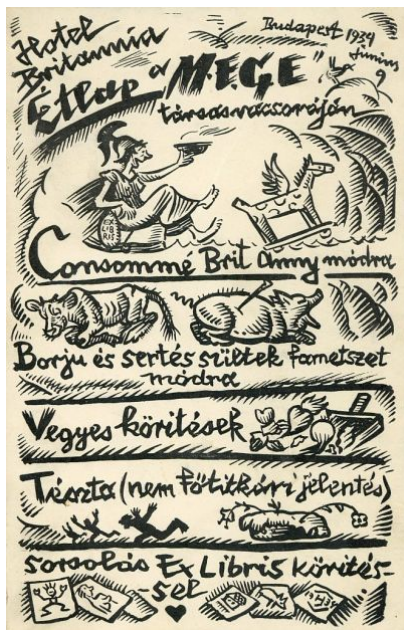 Hotel
Britannia
Budapest 1934
Junius
9
Étlap a "M.E.G.E"
társasvacsoráján
EX
LIB
RIS
Consommé Brit Anny módra
Borju és sertés sültek fametszet
módra
Vegyes köritések
Tészta (nem főtitkári jelentés)
Sorsolás Ex Libris körités-
-sel